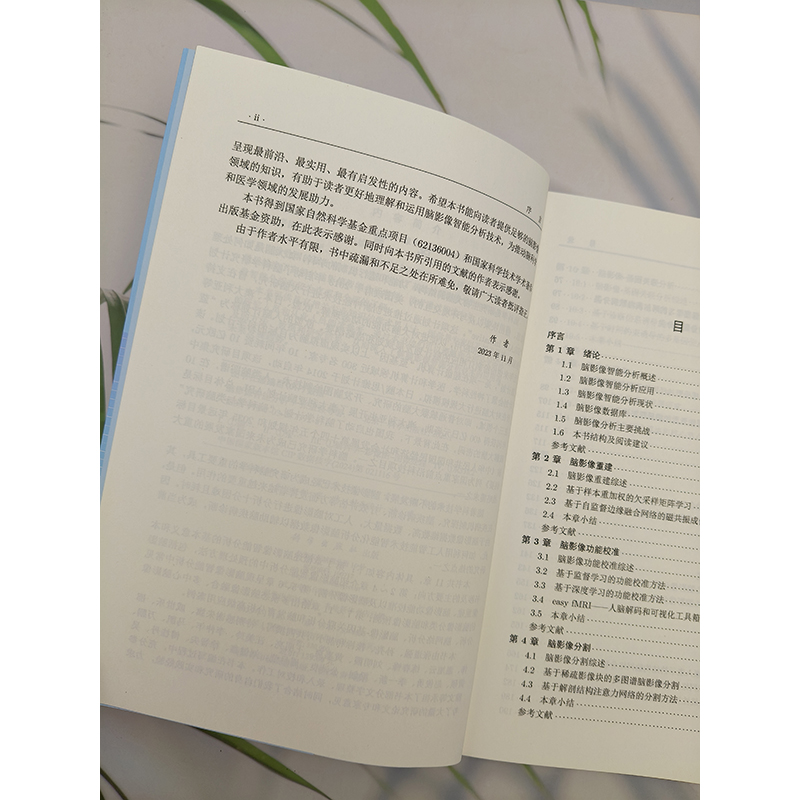 · ii ·
序
呈现最前沿、最实用、最有启发性的内容。希望本书能向读者提供足够的脑影像
领域的知识，有助于读者更好地理解和运用脑影像智能分析技术，为推动脑科学
和医学领域的发展助力。
本书得到国家自然科学基金重点项目（62136004）和国家科学技术学术著作
出版基金资助，在此表示感谢。同时向本书所引用的文献的作者表示感谢。
由于作者水平有限，书中疏漏和不足之处在所难免，敬请广大读者批评指正
作 者
2023 年 11 月
目
序言
第 1 章 绪论
1.1 脑影像智能分析概述
1.2 脑影像智能分析应用
1.3 脑影像智能分析现状
1.4 脑影像数据库
1.5 脑影像分析主要挑战
1.6 本书结构及阅读建议
参考文献
第 2 章 脑影像重建
2.1 脑影像重建综述
2.2 基于样本重加权的欠采样矩阵学习
2.3 基于自监督边缘融合网络的磁共振成
2.4 本章小结
参考文献
第 3 章 脑影像功能校准
3.1 脑影像功能校准综述
3.2 基于监督学习的功能校准方法
3.3 基于深度学习的功能校准方法
3.4 easy fMRI——人脑解码和可视化工具箱
3.5 本章小结
参考文献
第 4 章 脑影像分割
4.1 脑影像分割综述
4.2 基于稀疏影像块的多图谱脑影像分割
4.3 基于解剖结构注意力网络的分割方法
4.4 本章小结
参考文献